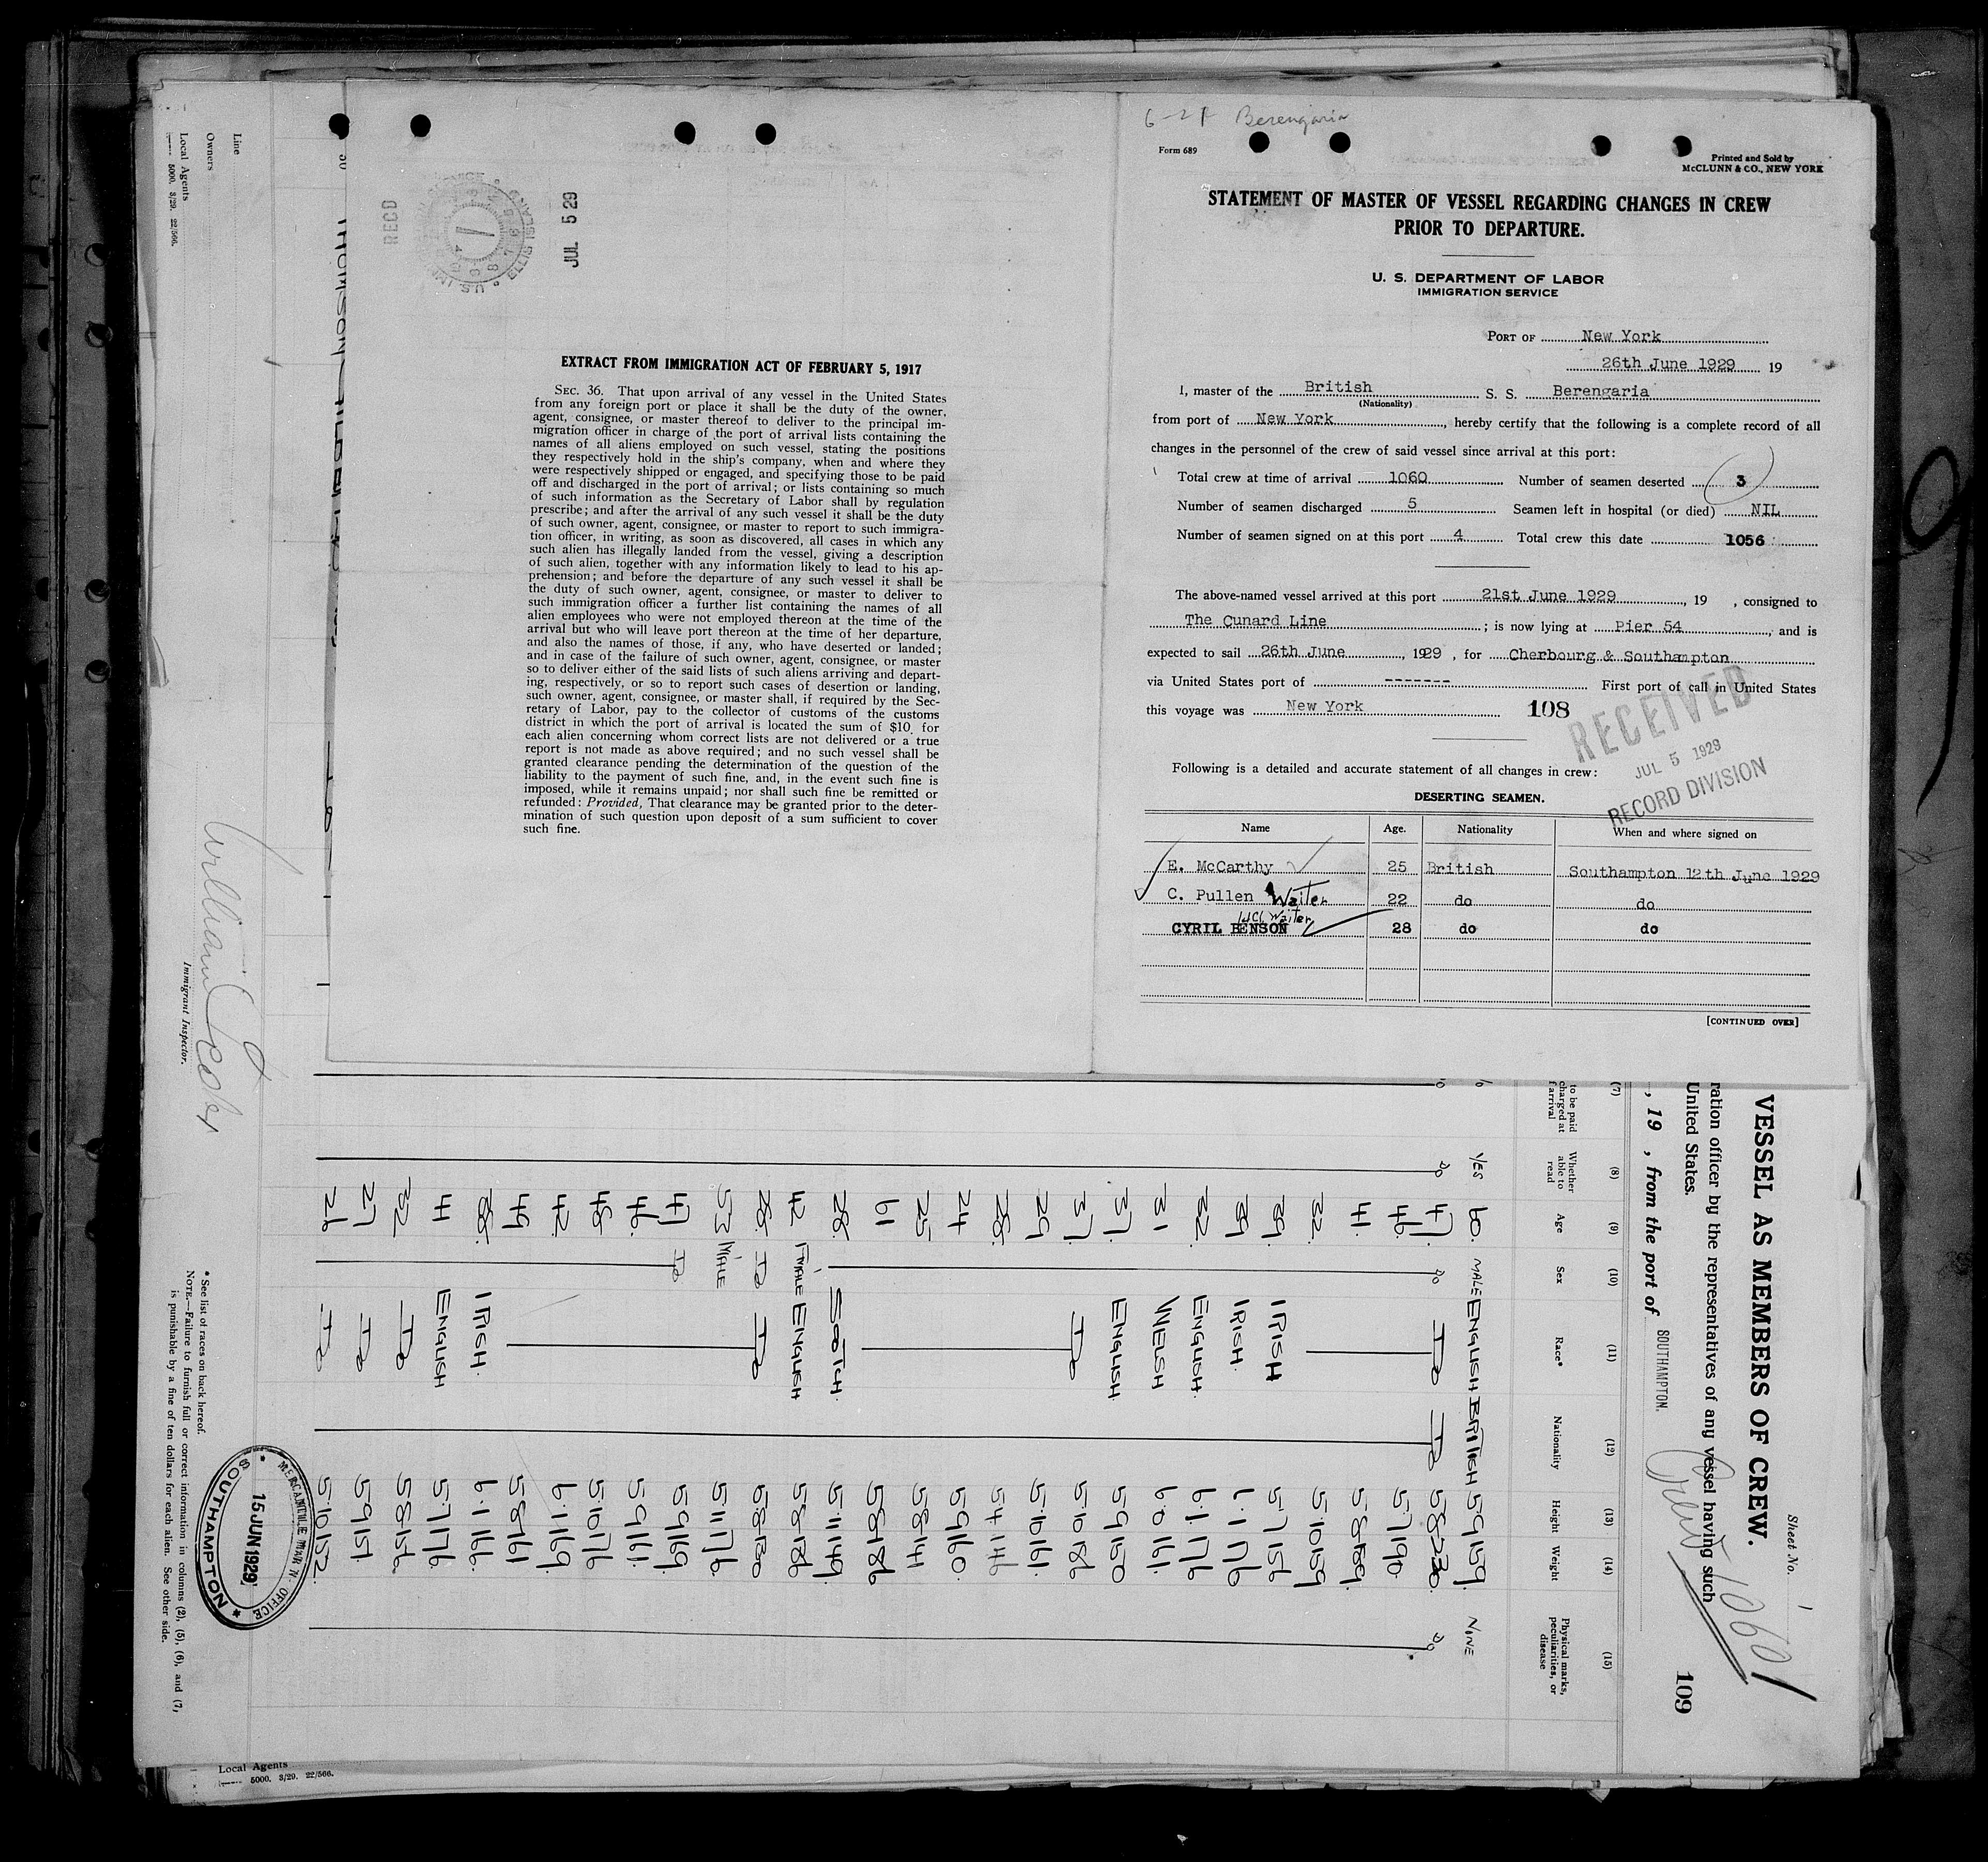 6-21 Berengaria
Form 689
Printed and Sold by
McCLUNN & CO., NEW YORK
STATEMENT OF MASTER OF VESSEL REGARDING CHANGES IN CREW
PRIOR TO DEPARTURE.
U. S. DEPARTMENT OF LABOR
IMMIGRATION SERVICE
PORT OF New York
26th June 1929 19
I, master of the British S. S. Berengaria
(Nationality)
from port of New York, hereby certify that the following is a complete record of all
changes in the personnel of the crew of said vessel since arrival at this port:
Total crew at time of arrival 1060 Number of seamen deserted 3
Number of seamen discharged 5 Seamen left in hospital (or died) NIL
Number of seamen signed on at this port 4 Total crew this date 1056
The above-named vessel arrived at this port 21st June 1929, 19 , consigned to
The Cunard Line; is now lying at Pier 54, and is
expected to sail 26th June, 1929, for Cherbourg & Southampton
via United States port of ------- First port of call in United States
this voyage was New York 108
RECEIVED
JUL 5 1929
RECORD DIVISION
Following is a detailed and accurate statement of all changes in crew:
DESERTING SEAMEN.
Name Age. Nationality When and where signed on
E. McCarthy 25 British Southampton 12th June 1929
C. Pullen Waiter 22 do do
Waiter
CYRIL BENSON 28 do do
[CONTINUED OVER]
RECD
U.S. IMMIGRATION
ELLIS ISLAND
JUL 5 29
EXTRACT FROM IMMIGRATION ACT OF FEBRUARY 5, 1917
SEC. 36. That upon arrival of any vessel in the United States
from any foreign port or place it shall be the duty of the owner,
agent, consignee, or master thereof to deliver to the principal im-
migration officer in charge of the port of arrival lists containing the
names of all aliens employed on such vessel, stating the positions
they respectively hold in the ship's company, when and where they
were respectively shipped or engaged, and specifying those to be paid
off and discharged in the port of arrival; or lists containing so much
of such information as the Secretary of Labor shall by regulation
prescribe; and after the arrival of any such vessel it shall be the duty
of such owner, agent, consignee, or master to report to such immigra-
tion officer, in writing, as soon as discovered, all cases in which any
such alien has illegally landed from the vessel, giving a description
of such alien, together with any information likely to lead to his ap-
prehension; and before the departure of any such vessel it shall be
the duty of such owner, agent, consignee, or master to deliver to
such immigration officer a further list containing the names of all
alien employees who were not employed thereon at the time of the
arrival but who will leave port thereon at the time of her departure,
and also the names of those, if any, who have deserted or landed;
and in case of the failure of such owner, agent, consignee, or master
so to deliver either of the said lists of such aliens arriving and depart-
ing, respectively, or so to report such cases of desertion or landing,
such owner, agent, consignee, or master shall, if required by the Sec-
retary of Labor, pay to the collector of customs of the customs
district in which the port of arrival is located the sum of $10 for
each alien concerning whom correct lists are not delivered or a true
report is not made as above required; and no such vessel shall be
granted clearance pending the determination of the question of the
liability to the payment of such fine, and, in the event such fine is
imposed, while it remains unpaid; nor shall such fine be remitted or
refunded: Provided, That clearance may be granted prior to the deter-
mination of such question upon deposit of a sum sufficient to cover
such fine.
Sheet No. 1
VESSEL AS MEMBERS OF CREW.
1060
109
ration officer by the representatives of any vessel having such
United States.
, 19 , from the port of SOUTHAMPTON.
(7) (8) (9) (10) (11) (12) (13) (14) (15)
to be paid
charged at
f arrival
Whether
able to
read
Age
Sex
Race*
Nationality
Height
Weight
Physical marks,
peculiarities, or
disease
YES 60. MALE ENGLISH BRITISH 5 9 159. NONE
Do 47 Do Do Do 5 8 230. Do
46. 5 7 190.
41 5 8 189.
32. 5 10 159
39. IRISH 5 7 156
39 IRISH. 6 1 176
32. ENGLISH. 6 1 176
31 WELSH 6 0 161.
37. ENGLISH 5 9 150
37. Do 5 10 186
29 5 10 161.
28. 5 4 146
24 5 9 160
25 5 8 141
61 5 8 186
28. SCOTCH. 5 11 149.
42 F'MALE ENGLISH 5 8 186
28. Do Do 5 8 130
53 MALE 5 11 176.
47 Do 5 9 169.
46. 5 9 161.
48 5 10 176
42. 6 1 169
49 5 8 161
38. IRISH. 6 1 166.
41 ENGLISH 5 7 176.
32 Do 5 8 156.
27 Do 5 9 151.
26 Do 5 10 152.
Line
Owners
Local Agents
5000. 3/29. 22/566.
William
Immigrant Inspector.
* See list of races on back hereof.
NOTE.—Failure to furnish full or correct information in columns (2), (5), (6), and (7),
is punishable by a fine of ten dollars for each alien. See other side.
MERCANTILE MAR'N. OFFICE
15 JUN 1929
SOUTHAMPTON
Local Agents
5000. 3/29. 22/566.